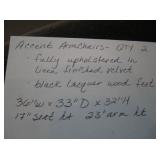 Accent Armchairs - QTY 2
- fully upholstered in
linen finished velvet
- black lacquer wood feet
36"W x 33"D x 32"H
17" seat ht 23" arm ht